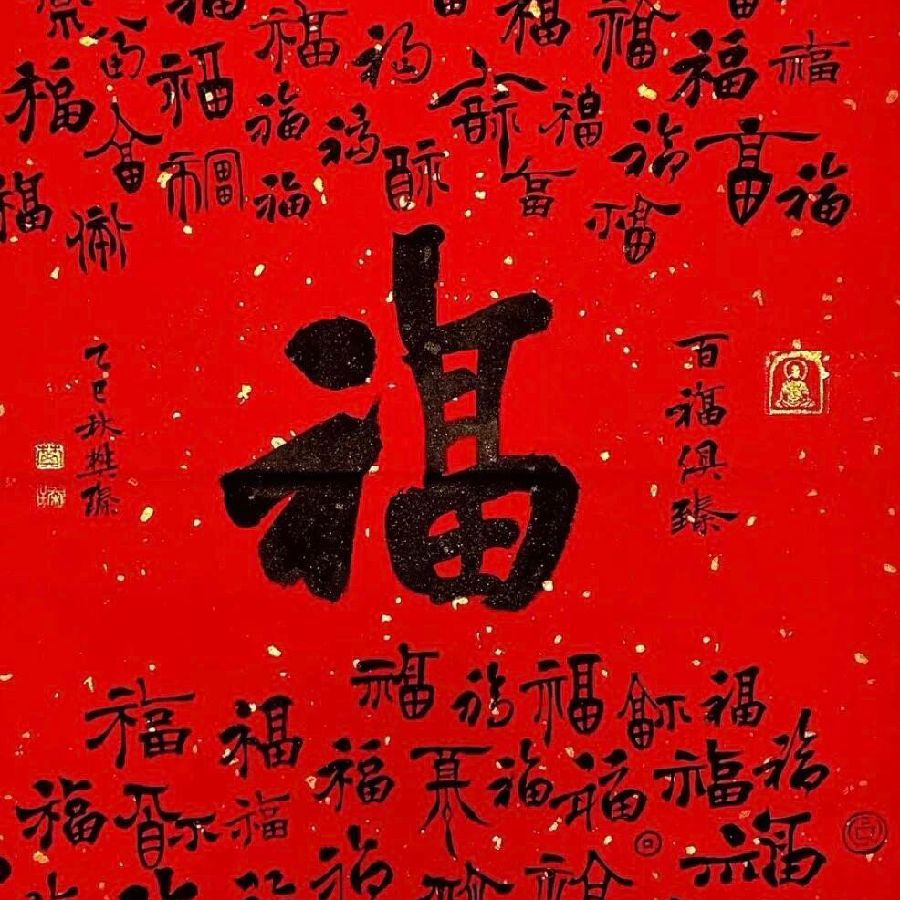 福 福 福 福 福 福
福 福 福 福 福 福 福 福
福 福 福 福 福 福 福 福
福 福 福 福 福 福 福 福
百福俱臻
福
乙巳秋樊
福 福 福 福 福
福 福 福 福 福 福 福 福
福 福 福 福 福 福
福 福 福 福 福